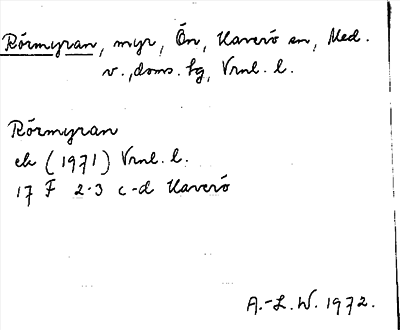 Rörmyran, myr, Ön, Haverö sn, Med.
v., doms. hg, Vrnl. l.
Rörmyran
ek (1971) Vrnl. l.
17 F 2-3 c-d Haverö
A.-L. W. 1972.